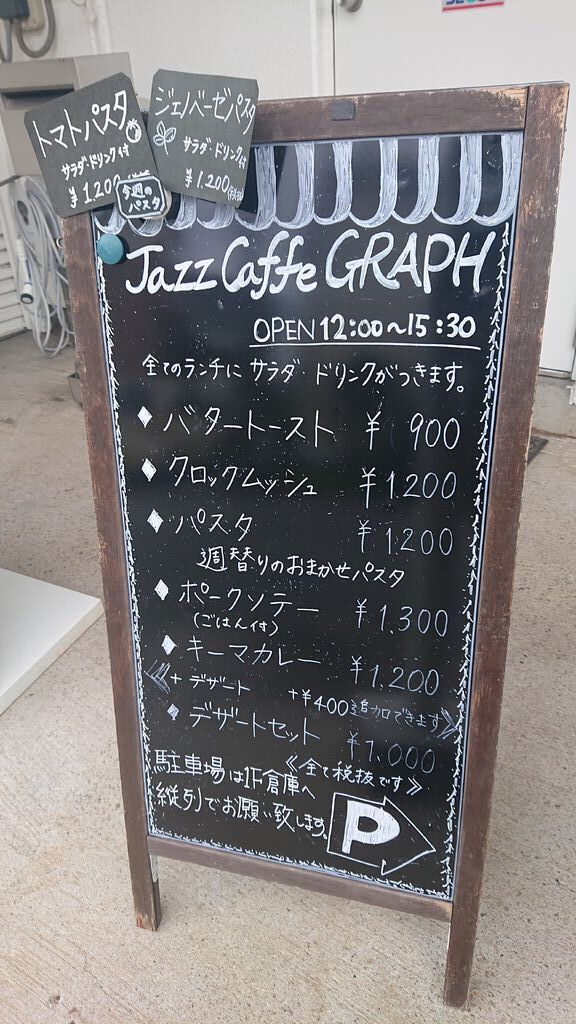 トマトパスタ
サラダ・ドリンク付
¥1,200
ジェノベーゼパスタ
サラダ・ドリンク付
¥1,200(税抜)
今週の
パスタ
Jazz Caffe GRAPH
OPEN 12:00〜15:30
全てのランチに サラダ・ドリンクがつきます。
◆バタートースト ¥900
◆クロックムッシュ ¥1.200
◆パスタ ¥1200
週替りのおまかせパスタ
◆ポークソテー ¥1.300
(ごはん付)
◆キーマカレー ¥1.200
《+デザート +¥400追加できます》
◆デザートセット ¥1.000
《全て税抜です》
駐車場は1F倉庫へ
縦列でお願い致します。
P